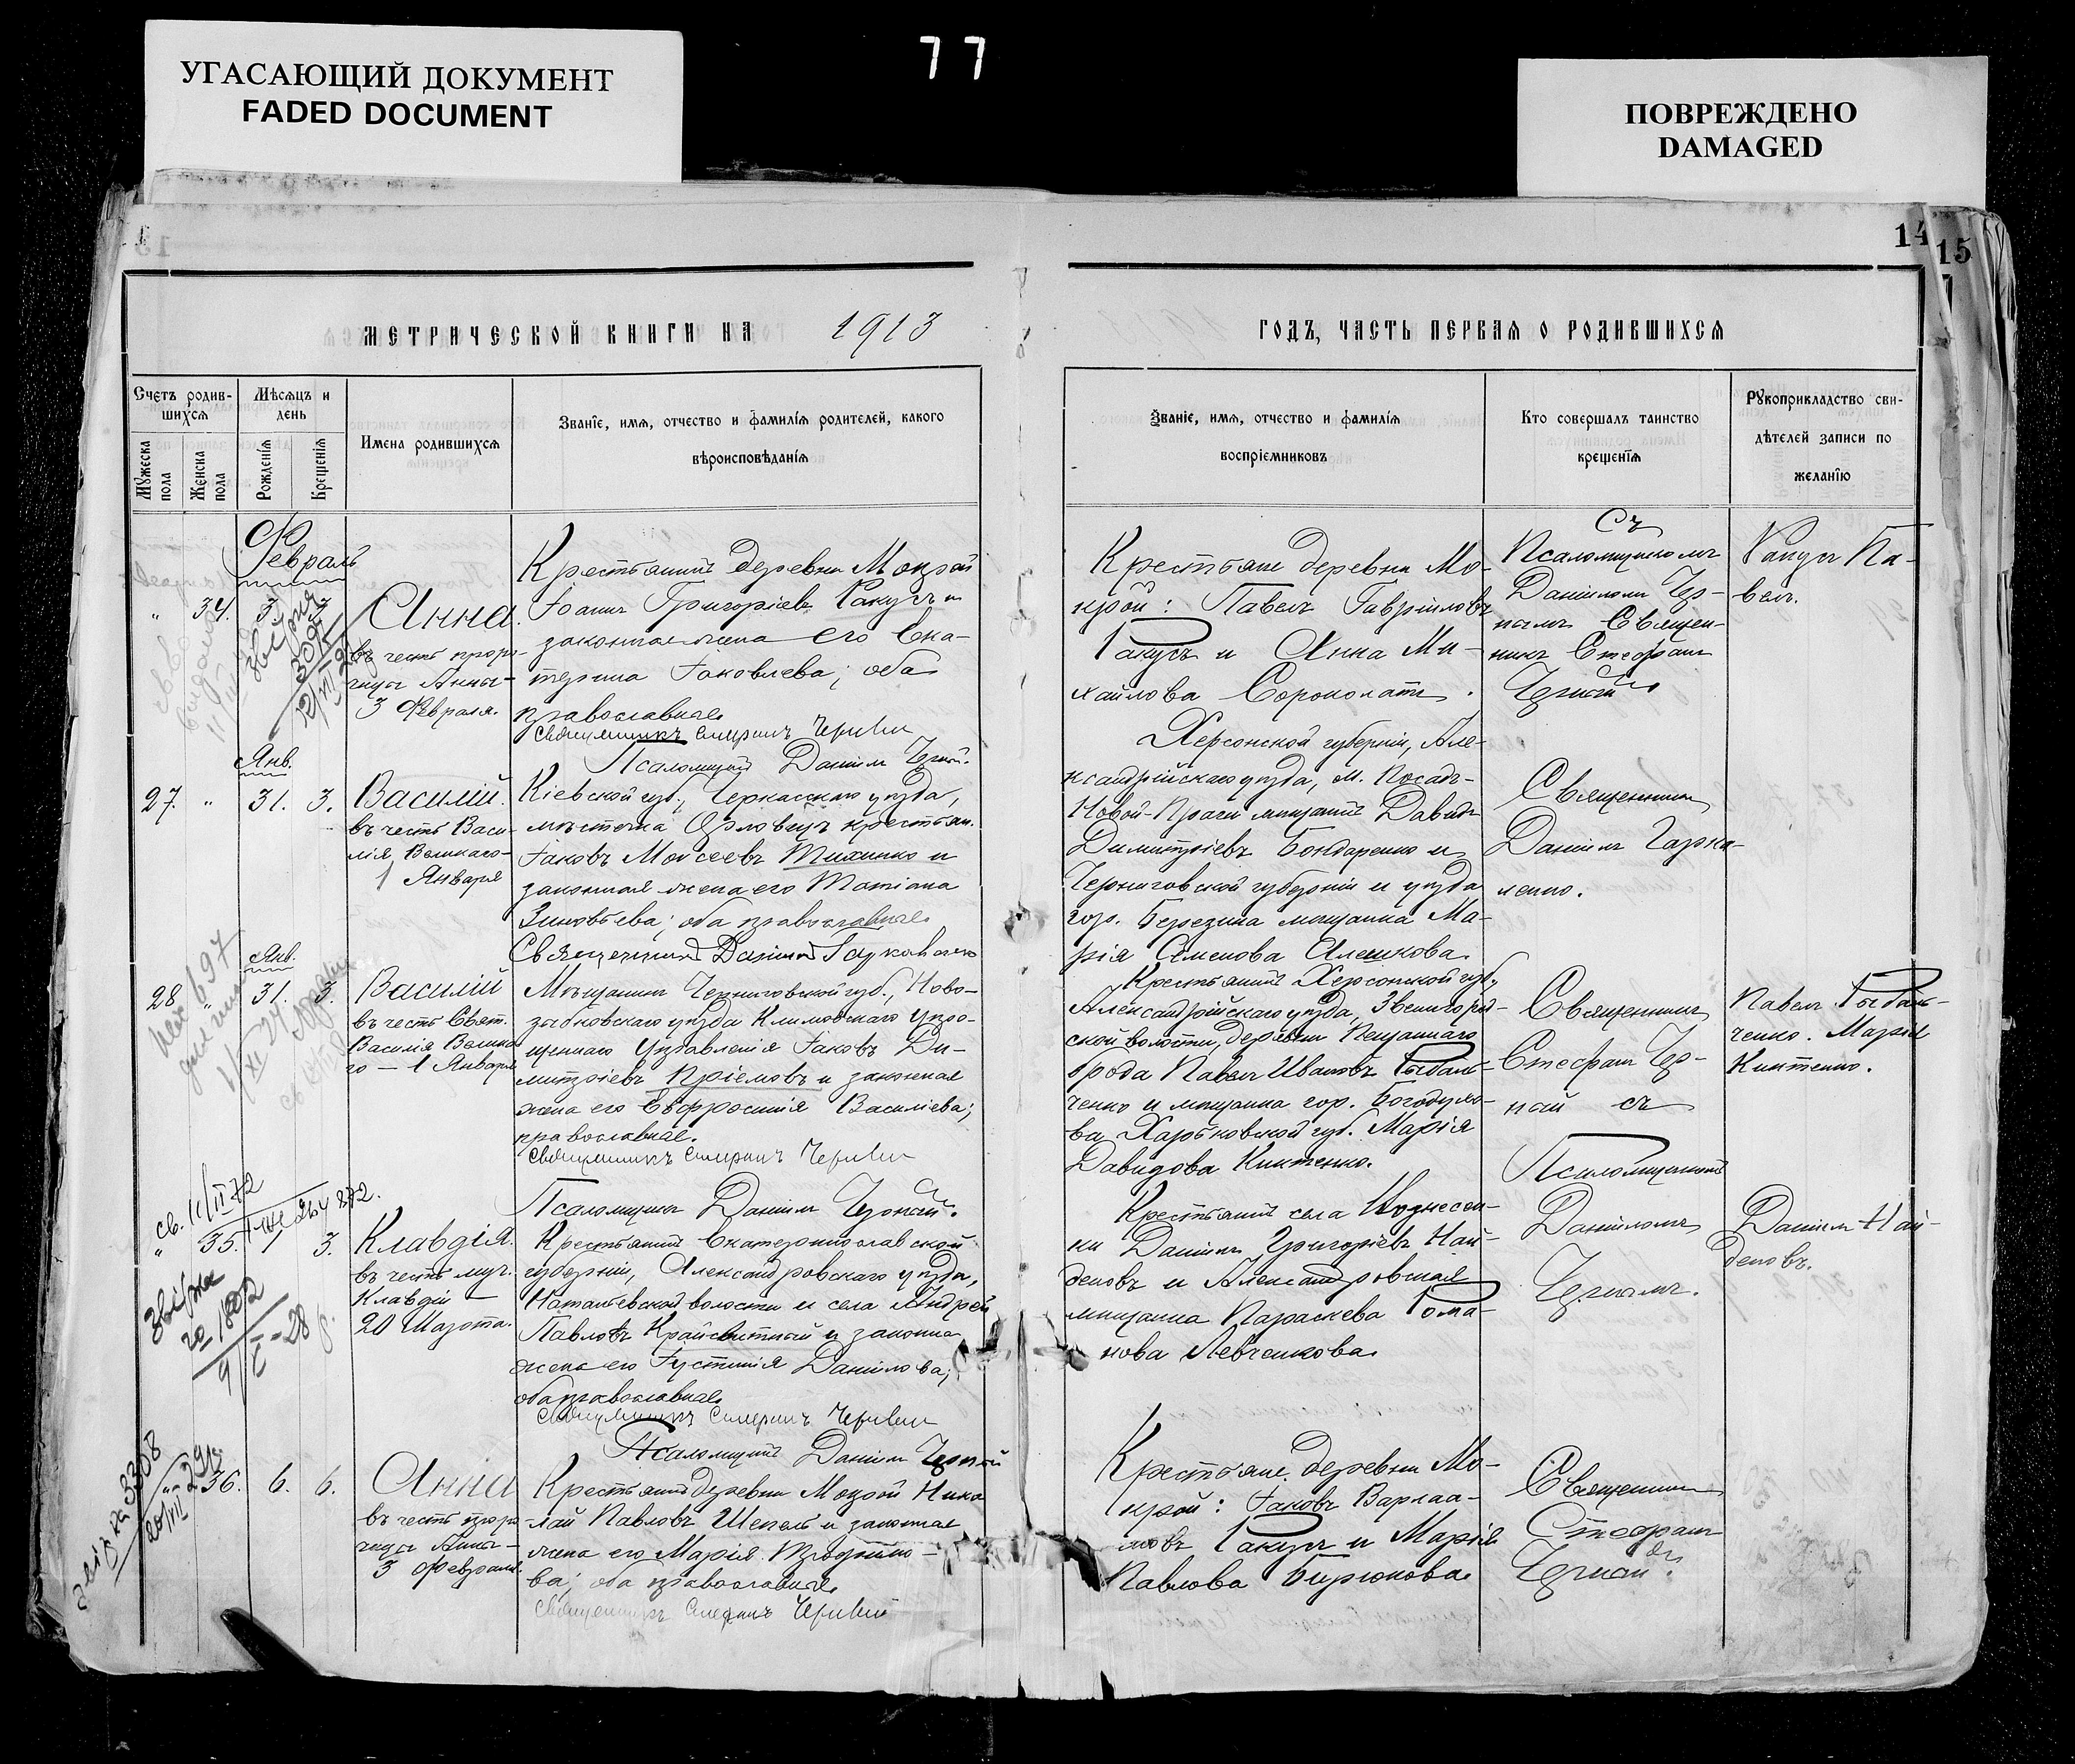 УГАСАЮЩИЙ ДОКУМЕНТ
FADED DOCUMENT
77
ПОВРЕЖДЕНО
DAMAGED
14
15
МЕТРИЧЕСКОЙ КНИГИ НА 1913
ГОДЪ, ЧАСТЬ ПЕРВАЯ О РОДИВШИХСЯ
Счетъ родив-
шихся
Мужеска пола
Женска пола
Мѣсяцъ и
день
Рожденія
Крещенія
Имена родившихся
Званіе, имя, отчество и фамилія родителей, какого
вѣроисповѣданія
Званіе, имя, отчество и фамилія
воспріемниковъ
Кто совершалъ таинство
крещенія
Рукоприкладство сви-
дѣтелей записи по
желанію
Февраль
" 34. 3. 3
Анна.
въ честь проро-
чицы Анны-
3 Февраля.
Крестьянинъ деревни Мокрой
Іоаннъ Григоріевъ Ракусъ и
законная жена его Ека-
терина Іаковлева; оба
православные
Священникъ Стефанъ Черный
Псаломщикъ Даніилъ Черный.
Крестьяне деревни Мо-
крой: Павелъ Гавріиловъ
Ракусъ и Анна Ми-
хайлова Сороколатъ.
Съ
Псаломщикомъ
Даніиломъ Чер-
нымъ Священ-
никъ Стефанъ
Черный
Ракусъ Па-
велъ.
Янв.
27. " 31. 3.
Василій.
въ честь Васи-
лія Великаго-
1 Января
Кіевской губ., Черкасскаго уѣзда,
мѣстечка Орловецъ крестьян.
Іаковъ Моѵсеевъ Тихенко и
законная жена его Татіана
Зиновьева; оба православные
Священникъ Даніилъ Гаркавенко
Херсонской губерніи, Але-
ксандрійскаго уѣзда, м. Посадъ-
Новой-Праги мѣщанинъ Давидъ
Димитріевъ Бондаренко и
Черниговской губерніи и уѣзда
гор. Березина мѣщанка Ма-
рія Семенова Алешкова
Священникъ
Даніилъ Гарка-
венко.
Янв.
28 " 31. 3.
Василій
въ честь Свят.
Василія Велика
го - 1 Января
Мѣщанинъ Черниговской губ., Ново-
зыбковскаго уѣзда Климовскаго Упро-
щеннаго Управленія Іаковъ Ди-
митріевъ Пріемовъ и законная
жена его Евфросинія Василіева;
православные.
Священникъ Стефанъ Черный
Псаломщикъ Даніилъ Черный.
Крестьянинъ Херсонской губ.,
Александрійскаго уѣзда, Звенигород-
ской волости, деревни Пещанаго
брода Павелъ Ивановъ Рыбаль-
ченко и мѣщанка гор. Богодухо-
ва Харьковской губ. Марія
Давидова Киктенко.
Священникъ
Стефанъ Чер-
ный съ
Псаломщикомъ
Даніиломъ
Чернымъ.
Павелъ Рыбаль-
ченко. Марія
Киктенко.
" 35. 1 3.
Клавдія.
въ честь муч.
Клавдіи -
20 Марта.
Крестьянинъ Екатеринославской
губерніи, Александровскаго уѣзда,
Натальевской волости и села Андрей
Павловъ Крайсвитный и законная
жена его Іустинія Даніилова;
оба православные
Священникъ Стефанъ Черный
Псаломщикъ Даніилъ Черный
Крестьянинъ села Вознесен-
ки Даніилъ Григоріевъ Най-
деновъ и Александровская
мѣщанка Параскева Рома-
нова Левченкова.
Даніилъ Най-
деновъ.
36. 6. 6.
Анна
въ честь проро-
чицы Анны -
3 Февраля.
Крестьянинъ деревни Мокрой Нико
лай Павловъ Шепель и законная
жена его Марія Трофимо-
ва; оба православные
Священникъ Стефанъ Черный
Крестьяне деревни Мо-
крой: Іаковъ Варлаа-
мовъ Ракусъ и Марія
Павлова Бирюкова
Священникъ
Стефанъ
Черный.